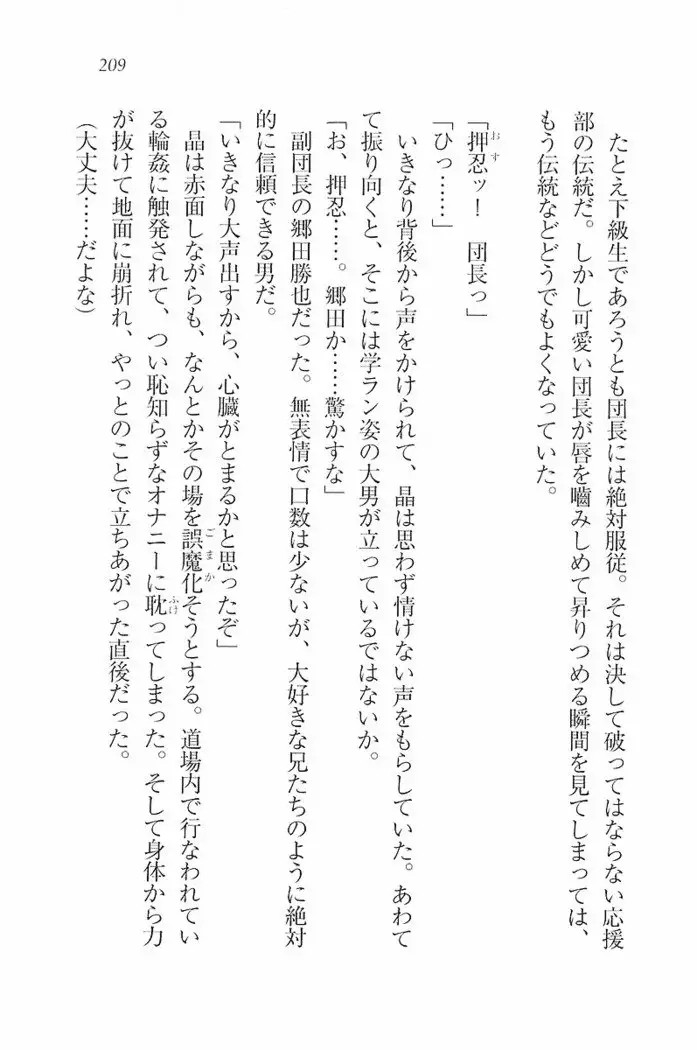 209
たとえ下級生であろうとも団長には絶対服従。それは決して破ってはならない応援
部の伝統だ。しかし可愛い団長が唇を噛みしめて昇りつめる瞬間を見てしまっては、
もう伝統などどうでもよくなっていた。
「押忍ッ！　団長っ」
「ひっ……」
いきなり背後から声をかけられて、晶は思わず情けない声をもらしていた。あわて
て振り向くと、そこには学ラン姿の大男が立っているではないか。
「お、押忍……。郷田か……驚かすな」
副団長の郷田勝也だった。無表情で口数は少ないが、大好きな兄たちのように絶対
的に信頼できる男だ。
「いきなり大声出すから、心臓がとまるかと思ったぞ」
晶は赤面しながらも、なんとかその場を誤魔化そうとする。道場内で行なわれてい
る輪姦に触発されて、つい恥知らずなオナニーに耽ってしまった。そして身体から力
が抜けて地面に崩折れ、やっとのことで立ちあがった直後だった。
(大丈夫……だよな)